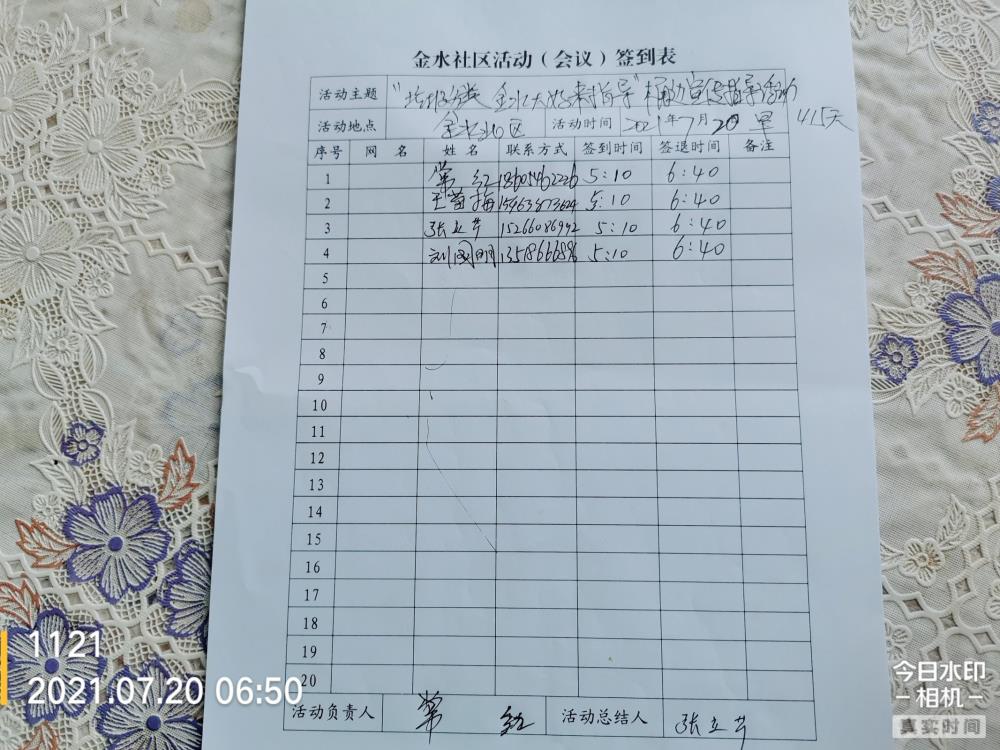 金水社区活动（会议）签到表
活动主题 "垃圾分类 金水大妈来指导"桶边宣传指导活动
活动地点 金水社区 活动时间 2021年7月20日 早 415天
序号 网 名 姓 名 联系方式 签到时间 签退时间 备注
1 红 18605462226 5:10 6:40
2 王 梅 5:10 6:40
3 张立芹 15266086942 5:10 6:40
4 刘国明 5:10 6:40
5
6
7
8
9
10
11
12
13
14
15
16
17
18
19
20
活动负责人 红 活动总结人 张立芹
1121
2021.07.20 06:50
今日水印
相机
真实时间